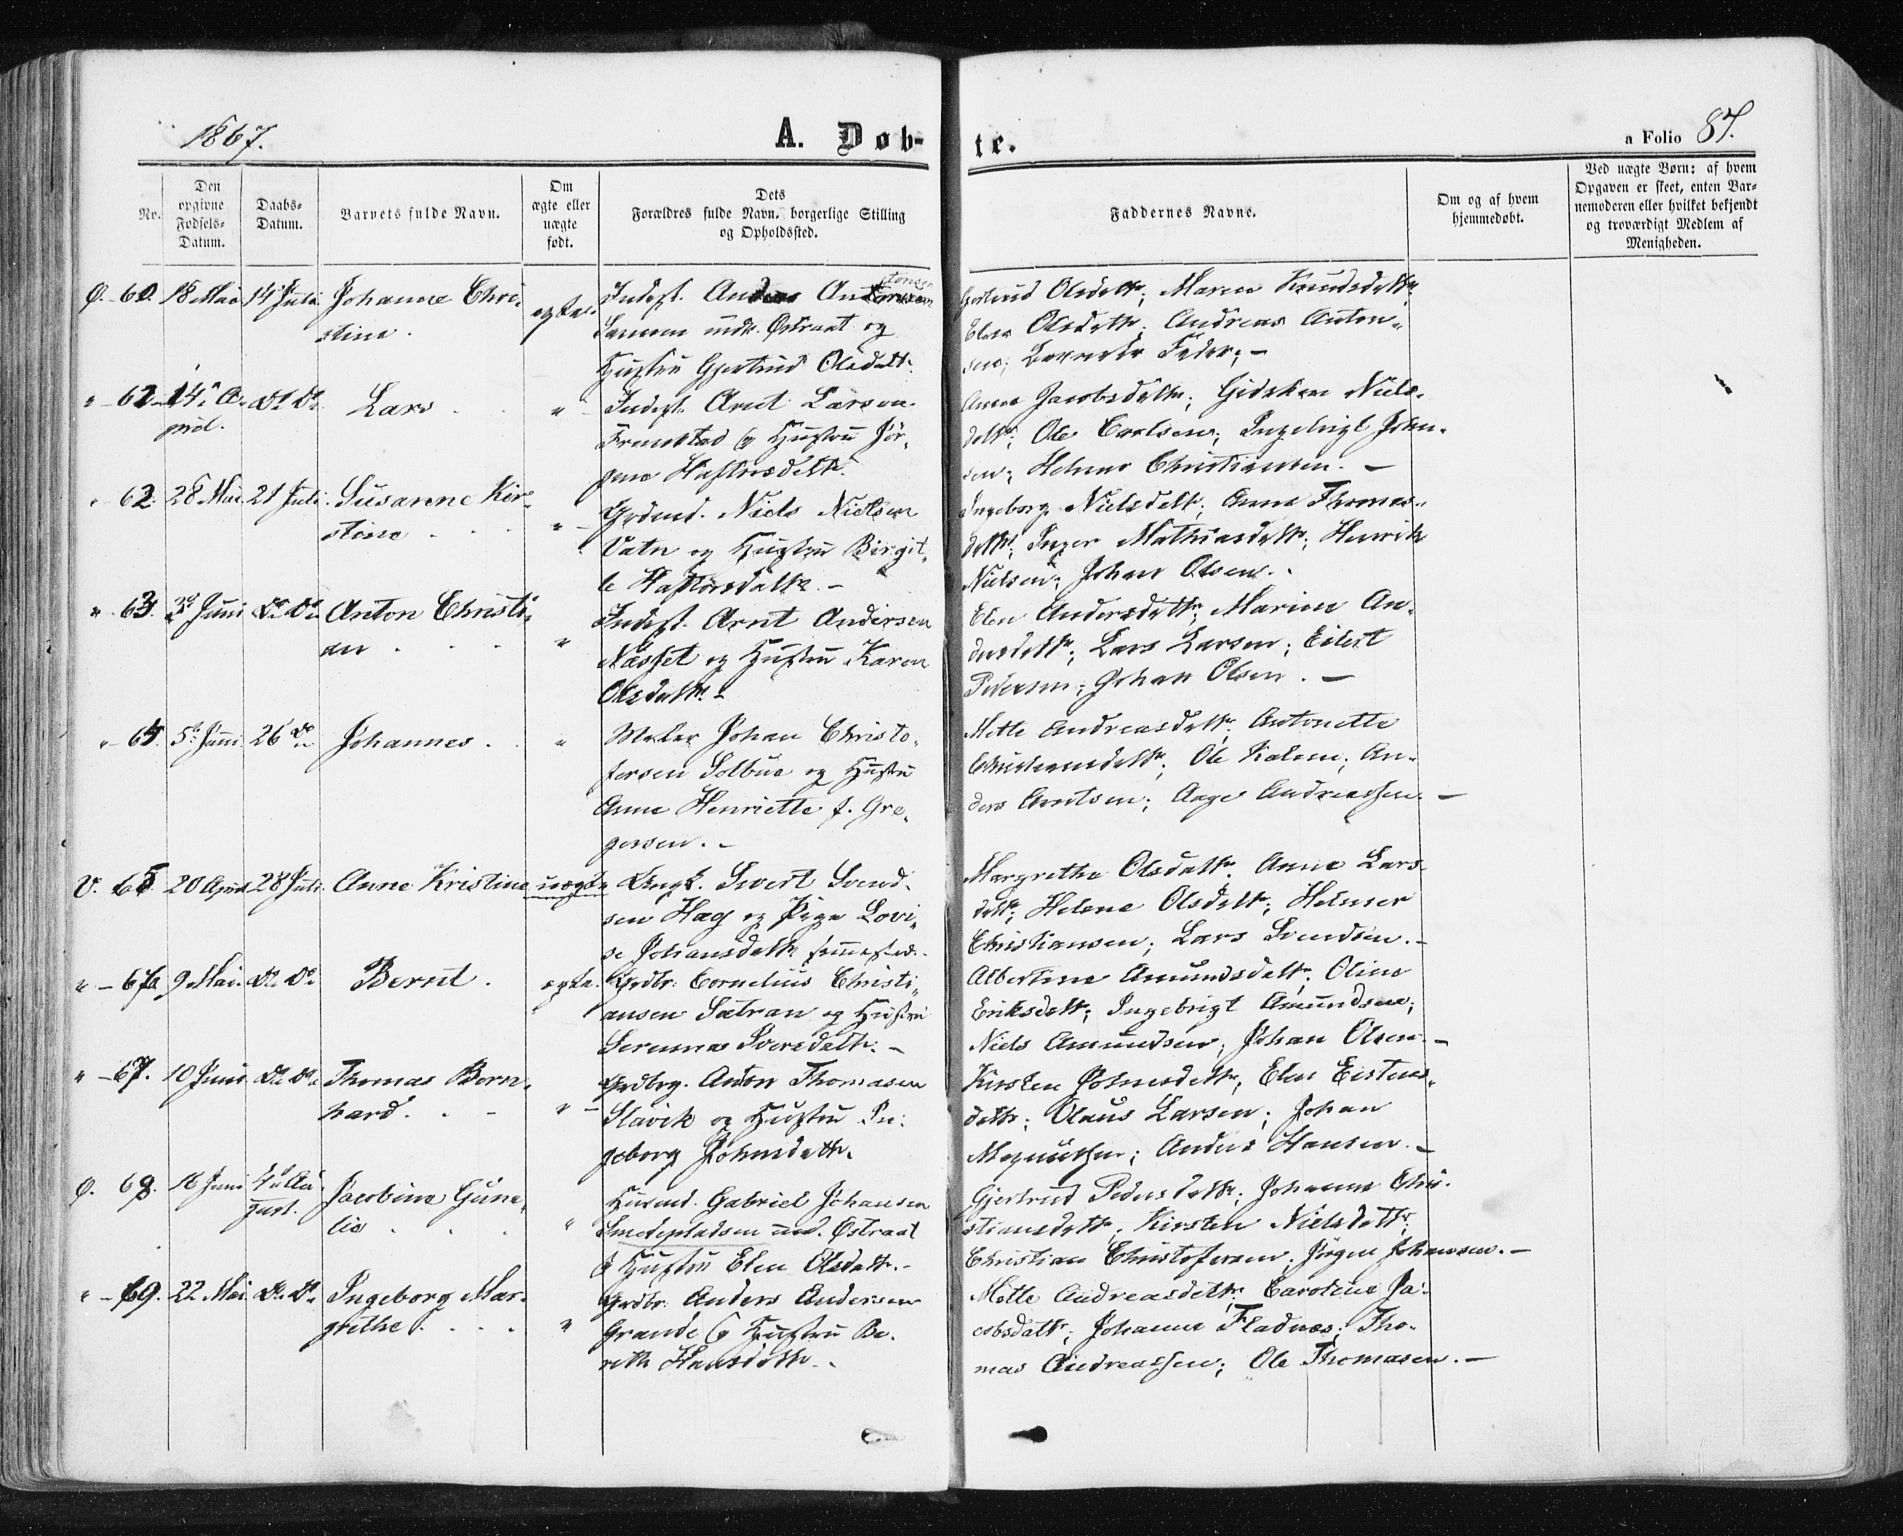 1867.
A. Døb-
te.
a Folio 87.
Nr.
Den opgivne Fødsels-Datum.
Daabs-Datum.
Barnets fulde Navn.
Om ægte eller uægte født.
Dets Forældres fulde Navn, borgerlige Stilling og Opholdssted.
Faddernes Navne.
Om og af hvem hjemmedøbt.
Ved uægte Børn: af hvem Opgaven er skeet, enten Barnemoderen eller hvilket bekjendt og troværdigt Medlem af Menigheden.
Ø. 60. 18 Mai 14 Juli Johanne Chri-
stine.
ægte.
Inderst. Anders Antonsen
und. Østraat og
Hustru Gjertrud Olsdatt.
Gjertrud Olsdattr; Maren Knudsdattr,
Elen Olsdattr; Andreas Anton-
sen; Barnets Fader; —
" 61. 14. A-
pril. do do Lars
"
Inderst. Arnt Larsen
Fremstad og Hustru Jør-
gine Haftorsdattr.
Anne Jacobsdattr; Gidsken Niels-
dattr; Ole Carlsen; Ingebrigt John-
sen; Helmer Christiansen. —
" 62. 28 Mai. 21 Juli. Susanne Kir-
stine
"
Grdmd. Niels Nielsen
Vatn og Hustru Birgit-
te Haftorsdattr. —
Ingeborg Nielsdatt; Anne Thomas-
dattr; Inger Mathiasdattr; Henrik
Nielsen; Johan Olsen.
" 63. 2d Juni do do Anton Christi-
an
"
Inderst. Arnt Andersen
Næsset og Hustru Karen
Olsdattr. —
Elen Andersdattr; Marien An-
dersdattr; Lars Larsen; Eilert
Pedersen; Johan Olsen. —
" 64. 5 Juni. 26 do Johannes.
"
Maler Johan Christo-
fersen Solbue og Hustru
Anne Henriette f. Gre-
gersen. —
Mette Andreasdattr; Antonette
Christiansdattr; Ole Kalsen; An-
ders Arntsen; Aage Andreassen. —
V. 65 20 April 28 Juli. Anne Kristine uægte
Ungk. Sivert Svend-
sen Hag og Pige Lovi-
se Johansdattr sammested.
Margrethe Olsdattr. Anne Lars-
dattr; Helene Olsdattr; Helmer
Christiansen; Lars Svendsen. —
" 66 9 Mai. do do Bernt. ægte.
Grdbr. Cornelius Christi-
ansen Sætran og Hustru
Serennas Iversdattr. —
Albertine Amundsdattr; Oline
Eriksdattr; Ingebrigt Amundsen;
Niels Amundsen; Johan Olsen. —
" 67. 10 Juni. do do Thomas Bern-
hard.
"
Grdbrg. Anton Thomasen
Slavik og Hustru In-
geborg Johnsdattr.
Kirsten Johnsdattr; Elen Eistens-
dattr; Olaus Larsen; Johan
Magnussen; Anders Hansen. —
Ø. 68. 16 Juni 4d Au-
gust. Jacobine Gune-
lie
"
Husmd. Gabriel Johansen
Smedepladsen und. Østraat
og Hustru Elen Olsdattr. —
Gjertrud Pedersdattr; Johanne Chri-
stiansdattr, Kirsten Nielsdattr;
Christian Christofersen; Jørgen Johansen. —
" 69. 22 Mai. do do Ingeborg Mar-
grethe.
"
Grdbr. Anders Andersen
Grande og Hustru Be-
reth Hansdattr.
Mette Andreasdattr; Caroline Ja-
cobsdattr; Johanne Fladnæs; Tho-
mas Andreassen; Ole Thomasen. —